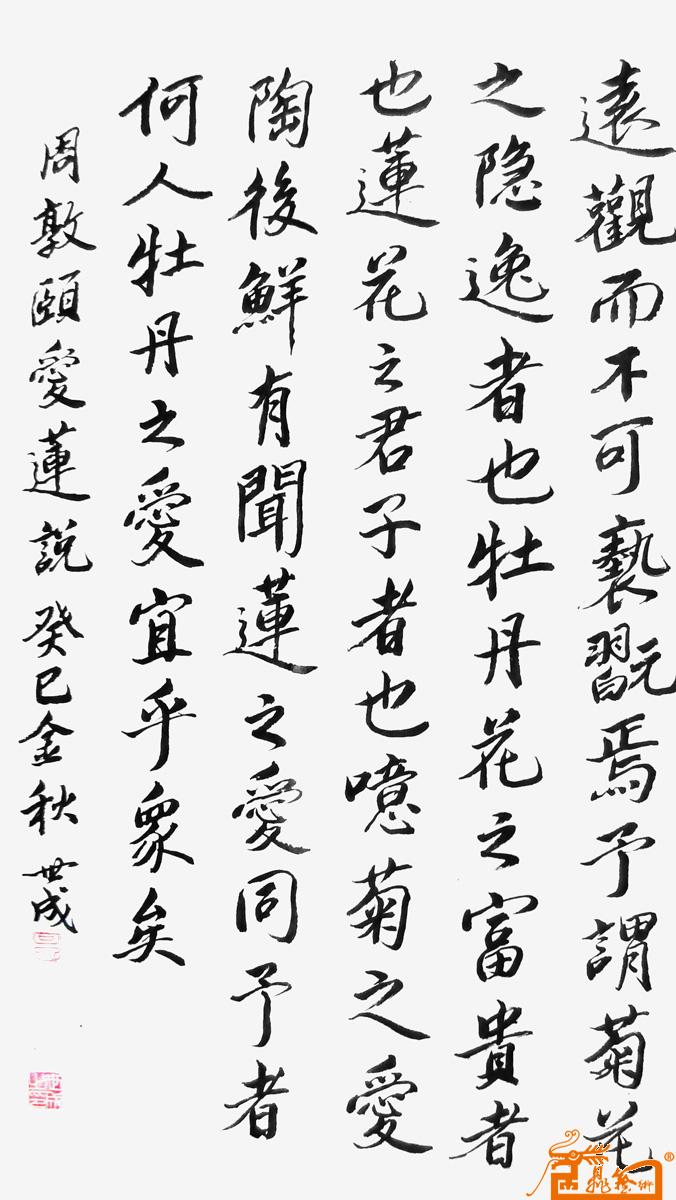 遠觀而不可褻翫焉予謂菊花
之隐逸者也牡丹花之富貴者
也蓮花之君子者也噫菊之愛
陶後鮮有聞蓮之愛同予者
何人牡丹之愛宜乎衆矣
周敦頤愛蓮説癸巳金秋世成